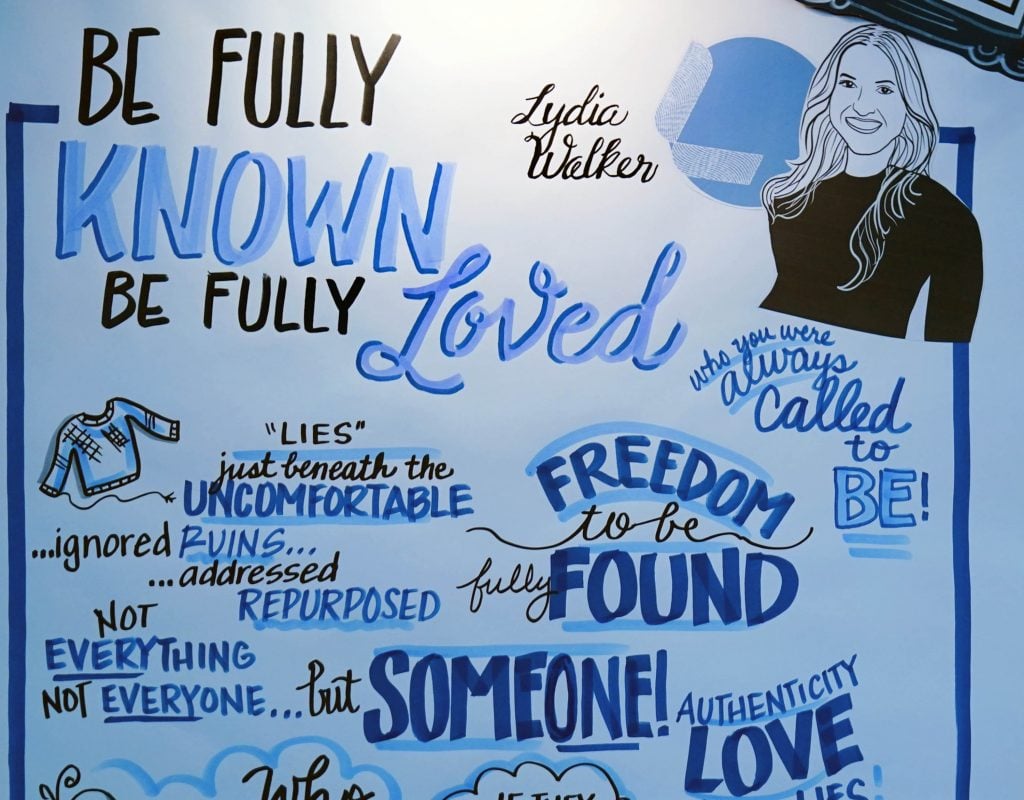 BE FULLY
KNOWN
BE FULLY
Loved
Lydia
Walker
who you were
always
called
to
BE!
"LIES"
just beneath the
UNCOMFORTABLE
...ignored RUINS...
...addressed
REPURPOSED
FREEDOM
to be
fully FOUND
NOT
EVERYTHING
NOT EVERYONE... but SOMEONE!
AUTHENTICITY
LOVE
Who
IF THEY